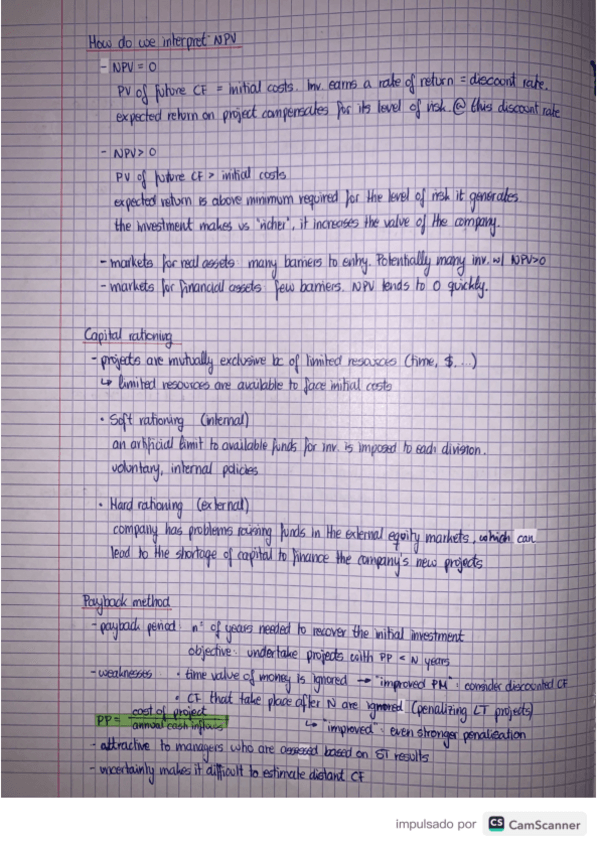 How do we interpret NPV
- NPV = 0
PV of future CF = initial costs. Inv. earns a rate of return = discount rate.
expected return on project compensates for its level of risk @ this discount rate
- NPV > 0
PV of future CF > initial costs
expected return is above minimum required for the level of risk it generates.
the investment makes us "richer", it increases the value of the company.
- markets for real assets: many barriers to entry. Potentially many inv. w/ NPV>0
- markets for financial assets: few barriers. NPV tends to 0 quickly.
Capital rationing
- projects are mutually exclusive bc of limited resources (time, $, ...)
↳ limited resources are available to face initial costs
• Soft rationing (internal)
an artificial limit to available funds for inv. is imposed to each division.
voluntary, internal policies
• Hard rationing (external)
company has problems raising funds in the external equity markets, which can
lead to the shortage of capital to finance the company's new projects
Payback method
- payback period: nº of years needed to recover the initial investment
objective: undertake projects with PP < N years
- weaknesses: • time value of money is ignored → "improved PM": consider discounted CF
• CF that take place after N are ignored (penalizing LT projects)
PP = cost of project / annual cash inflows
↳ "improved": even stronger penalisation
- attractive to managers who are assessed based on ST results
- uncertainty makes it difficult to estimate distant CF
impulsado por CS CamScanner